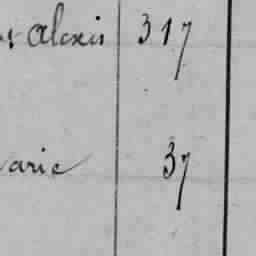 Alexis 317
arie 37